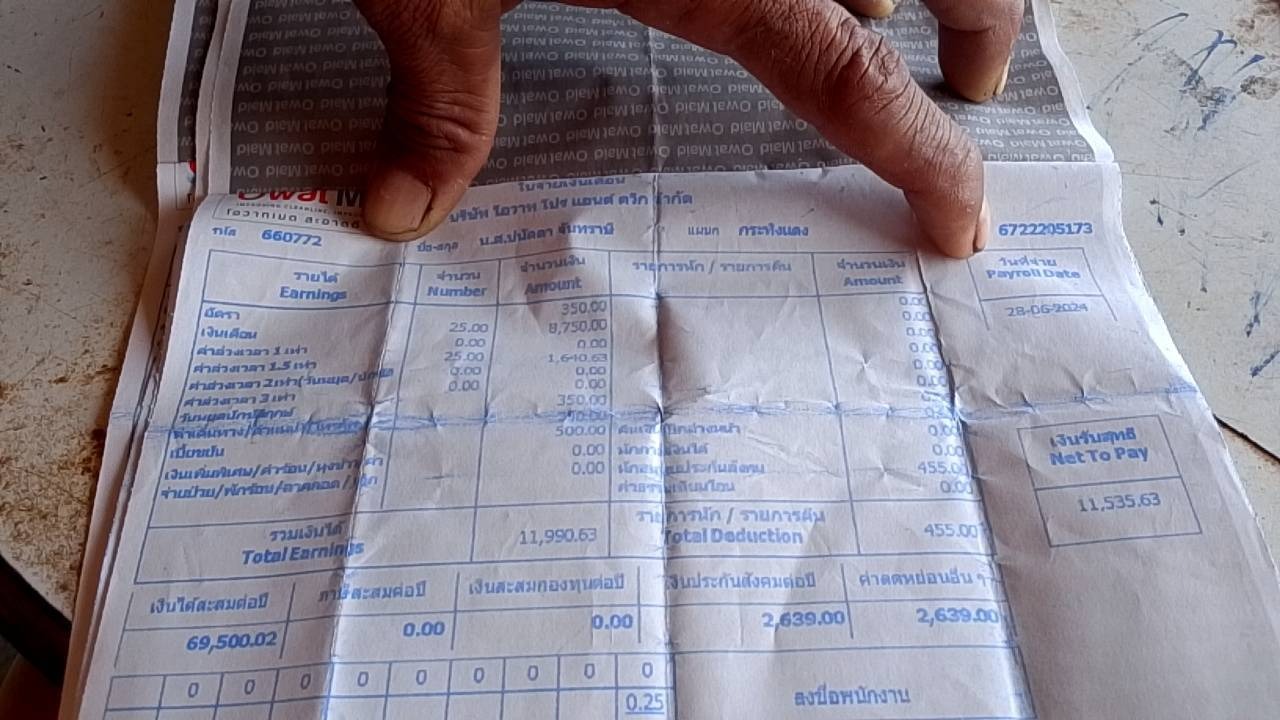 Owat Maid Owat Maid Owat Maid Owat Maid
Owat M
โอวาทเมด สะอาดดี
ใบจ่ายเงินเดือน
บริษัท โอวาท โปร แอนด์ ควิก จำกัด
รหัส 660772 ชื่อ-สกุล น.ส.ปนัดดา จันทราษี แผนก กระทิงแดง 6722205173
รายได้ จำนวน จำนวนเงิน รายการหัก / รายการคืน จำนวนเงิน วันที่จ่าย
Earnings Number Amount Amount Payroll Date
28-06-2024
อัตรา 350.00 0.00
เงินเดือน 25.00 8,750.00 0.00
ค่าล่วงเวลา 1 เท่า 0.00 0.00 0.00
ค่าล่วงเวลา 1.5 เท่า 25.00 1,640.63 0.00
ค่าล่วงเวลา 2 เท่า(วันหยุด/นักขัต 0.00 0.00 0.00
ค่าล่วงเวลา 3 เท่า 0.00 0.00 0.00
วันหยุดนักขัตฤกษ์ 350.00
เบี้ยขยัน 500.00 0.00
เงินเพิ่มพิเศษ/ค่าร้อน/ 0.00 0.00
0.00 ประกันสังคม 455.00
ค่าธรรมเนียมโอน 0.00
เงินรับสุทธิ
Net To Pay
11,535.63
รวมเงินได้ 11,990.63 รายการหัก / รายการคืน 455.00
Total Earnings Total Deduction
เงินได้สะสมต่อปี ภาษีสะสมต่อปี เงินสะสมกองทุนต่อปี เงินประกันสังคมต่อปี ค่าลดหย่อนอื่น ๆ
69,500.02 0.00 0.00 2,639.00 2,639.00
0 0 0 0 0 0 0 0 0
0.25
ลงชื่อพนักงาน